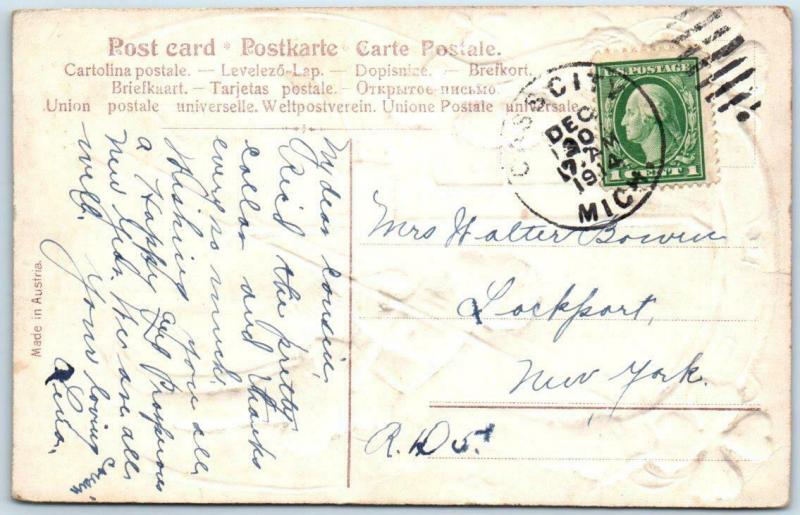 Post card • Postkarte • Carte Postale.
Cartolina postale. — Levelező-Lap. — Dopisnice. — Brefkort.
Briefkaart. — Tarjetas postale. — Открытое письмо.
Union postale universelle. Weltpostverein. Unione Postale universale.
CASS CITY
DEC
30
AM
1914
MICH.
U.S. POSTAGE
1 CENT 1
My dear Cousin,
Rec'd the pretty
collar and thanks
ever so much.
Wishing you all
a Happy and Prosperous
New Year. We are all
well. Your loving
Cousin,
Lena,
Mrs Walter Bowen
Lockport,
New York.
R. D 5.
Made in Austria.